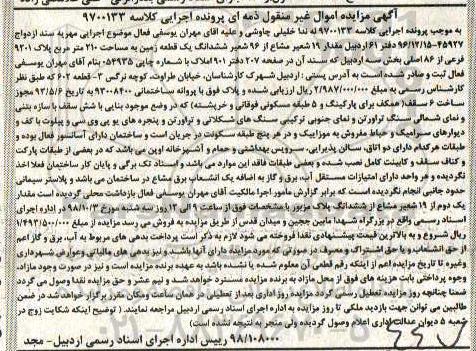 آگهی مزایده اموال غیر منقول ذمه ای پرونده اجرایی کلاسه ۹۷۰۰۱۳۳
به موجب پرونده اجرایی کلاسه ۹۷۰۰۱۳۳ له ندا خلیلی چاوشی و علیه آقای مهران یوسفی فعال موضوع اجرایی مهریه سند ازدواج
۴۵۹۲۷-۹۶/۱۲/۱۵ دفتر ۶۱ اردبیل مقدار ۱۹ شعیر مشاع از ۹۶ شعیر ششدانگ یک قطعه زمین به مساحت ۲۱۰ متر مربع پلاک ۹۲۰۱
فرعی از ۸۶ اصلی بخش سه اردبیل که سند آن در صفحه ۲۰۷ دفتر ۹۰۱ املاک با شماره چاپی ۰۵۴۹۳۵ بنام آقای مهران یوسفی
فعال ثبت و صادر شده است به آدرس پستی : اردبیل شهرک کارشناسان، خیابان طراوت، کوچه نرگس ۳- قطعه ۶۰۲ که طبق نظر
کارشناس رسمی به مبلغ ۲/۹۸۷/۰۰۰/۰۰۰ ریال ارزیابی شده و پلاک فوق با پروانه ساختمانی ۹۳۰۰۸۴۰۰ به تاریخ ۹۳/۵/۶ مجوز
ساخت ۶ سقف( همکف برای پارکینگ و ۵ طبقه مسکونی فوقانی و خرپشته) که در وضع موجود بنایی با شش سقف با سازه بتنی
و نمای شمالی سنگ تراورتن و نمای جنوبی ترکیبی سنگ های اسلاتکی و تراورتن و پنجره های یو پی وی سی و پیلوت با کف و
دیوارهای سرامیک و حیاط مفروش به موزاییک و در هر پنج طبقه مسکونت در جریان است و ساختمان دارای آسانسور فعال بوده و
طبقات هرکدام دارای دو اتاق، سالن پذیرایی، سرویس بهداشتی و حمام و آشپزخانه اوپن می باشد که در بعضی از طبقات پارکت
و کناف سقف و کابینت کامل نصب شده و بعضی طبقات فاقد این موارد می باشد و اسناد تک برگی و پایان کار ساختمان فعلا اخذ
نگردیده و هر واحد دارای امتیازات مستقل آب، برق و گاز به اضافه یک انشعاب برق مشاع در ساختمان می باشد و پلاستر سیمانی
حدود جانبی انجام نگردیده است که برابر گزارش مأمور اجرا مالکیت آقای مهران یوسفی فعال بازداشت محلی گردیده است مقدار
یک دوم از ۱۹ شعیر مشاع از ششدانگ پلاک مزبور با مشخصات فوق از ساعت ۹ الی ۱۲ روز سه شنبه مورخ ۹۸/۱۰/۳ در اداره اجرای
اسناد رسمی واقع در بزرگراه شهدا مابین ججین و میدان قدس از طریق مزایده به فروش می رسد مزایده از مبلغ ۱/۴۹۳/۵۰۰/۰۰۰
ریال شروع و به بالاترین قیمت پیشنهادی نقدا فروخته می شود لازم به ذکر است پرداخت بدهی های مربوط به آب، برق و گاز اعم
از حق انشعاب و یا حق اشتراک و مصرف در صورتی که مورد مزایده دارای آنها باشد و نیز بدهی های مالیاتی وعوارض شهرداری
وغیره تا تاریخ مزایده اعم از اینکه رقم قطعی آن معلوم شده یا نشده باشد به عهده برنده مزایده است و نیز در صورت وجود مازاد،
وجوه پرداختی بابت هزینه های فوق از محل مازاد به برنده مزایده مسترد خواهد شد و نیم عشر و حق مزایده نقدا وصول می گردد
ضمنا چنانچه روز مزایده تعطیل رسمی گردد مزایده روز اداری بعد از تعطیلی در همان ساعت ومکان مقرر برگزار خواهد شد در ضمن
طالبین می توانن جهت بازدید ملکی تا روز مزایده به اداره اجرای اسناد رسمی اردبیل مراجعه نمایند. ( توضیح اینکه شکایت زوج در
شعبه ۵ دیوان عدالت اداری اعلام وصول گردیده ولی منجر به نتیجه نشده است)
۹۸/۱۰۸۰۰۰ رییس اداره اجرای اسناد رسمی اردبیل- مجد